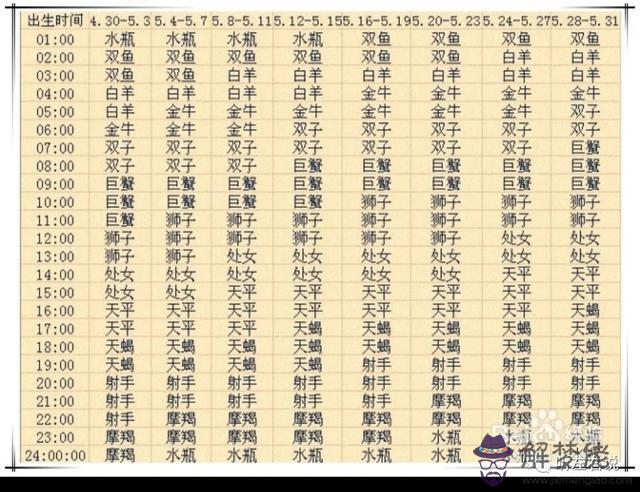 出生时间 4.30-5.3 5.4-5.7 5.8-5.11 5.12-5.15 5.16-5.19 5.20-5.23 5.24-5.27 5.28-5.31
01:00 水瓶 水瓶 水瓶 水瓶 双鱼 双鱼 双鱼 双鱼
02:00 双鱼 双鱼 双鱼 双鱼 双鱼 双鱼 白羊 白羊
03:00 双鱼 双鱼 白羊 白羊 白羊 白羊 白羊 白羊
04:00 白羊 白羊 白羊 白羊 金牛 金牛 金牛 金牛
05:00 白羊 金牛 金牛 金牛 金牛 金牛 金牛 双子
06:00 金牛 金牛 金牛 双子 双子 双子 双子 双子
07:00 双子 双子 双子 双子 双子 双子 双子 巨蟹
08:00 双子 双子 双子 巨蟹 巨蟹 巨蟹 巨蟹 巨蟹
09:00 巨蟹 巨蟹 巨蟹 巨蟹 巨蟹 巨蟹 巨蟹 巨蟹
10:00 巨蟹 巨蟹 巨蟹 巨蟹 狮子 狮子 狮子 狮子
11:00 巨蟹 狮子 狮子 狮子 狮子 狮子 狮子 狮子
12:00 狮子 狮子 狮子 狮子 狮子 狮子 处女 处女
13:00 狮子 狮子 处女 处女 处女 处女 处女 处女
14:00 处女 处女 处女 处女 处女 处女 天平 天平
15:00 处女 处女 天平 天平 天平 天平 天平 天平
16:00 天平 天平 天平 天平 天平 天平 天平 天蝎
17:00 天平 天平 天平 天蝎 天蝎 天蝎 天蝎 天蝎
18:00 天蝎 天蝎 天蝎 天蝎 天蝎 天蝎 天蝎 天蝎
19:00 天蝎 天蝎 天蝎 天蝎 射手 射手 射手 射手
20:00 射手 射手 射手 射手 射手 射手 射手 射手
21:00 射手 射手 射手 射手 射手 摩羯 摩羯 摩羯
22:00 射手 摩羯 摩羯 摩羯 摩羯 摩羯 摩羯 摩羯
23:00 摩羯 摩羯 摩羯 摩羯 摩羯 水瓶 水瓶 水瓶
24:00:00 摩羯 水瓶 水瓶 水瓶 水瓶 水瓶
解梦佬